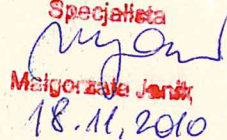 Specjalista
Małgorzata Janik
18.11.2010